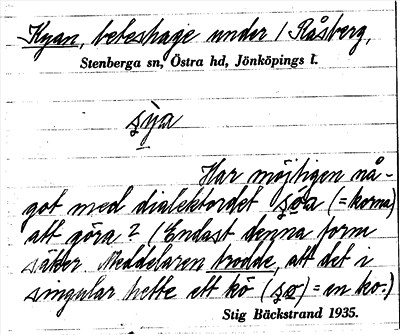 Kyan, beteshage under 1 Råsberg,
Stenberga sn, Östra hd, Jönköpings l.
şỳa
Har möjligen nå-
got med dialektordet şøa (=korna)
att göra? (Endast denna form
säker. Meddelaren trodde, att det i
singular hette ett kö (şø) = en ko.)
Stig Bäckstrand 1935.